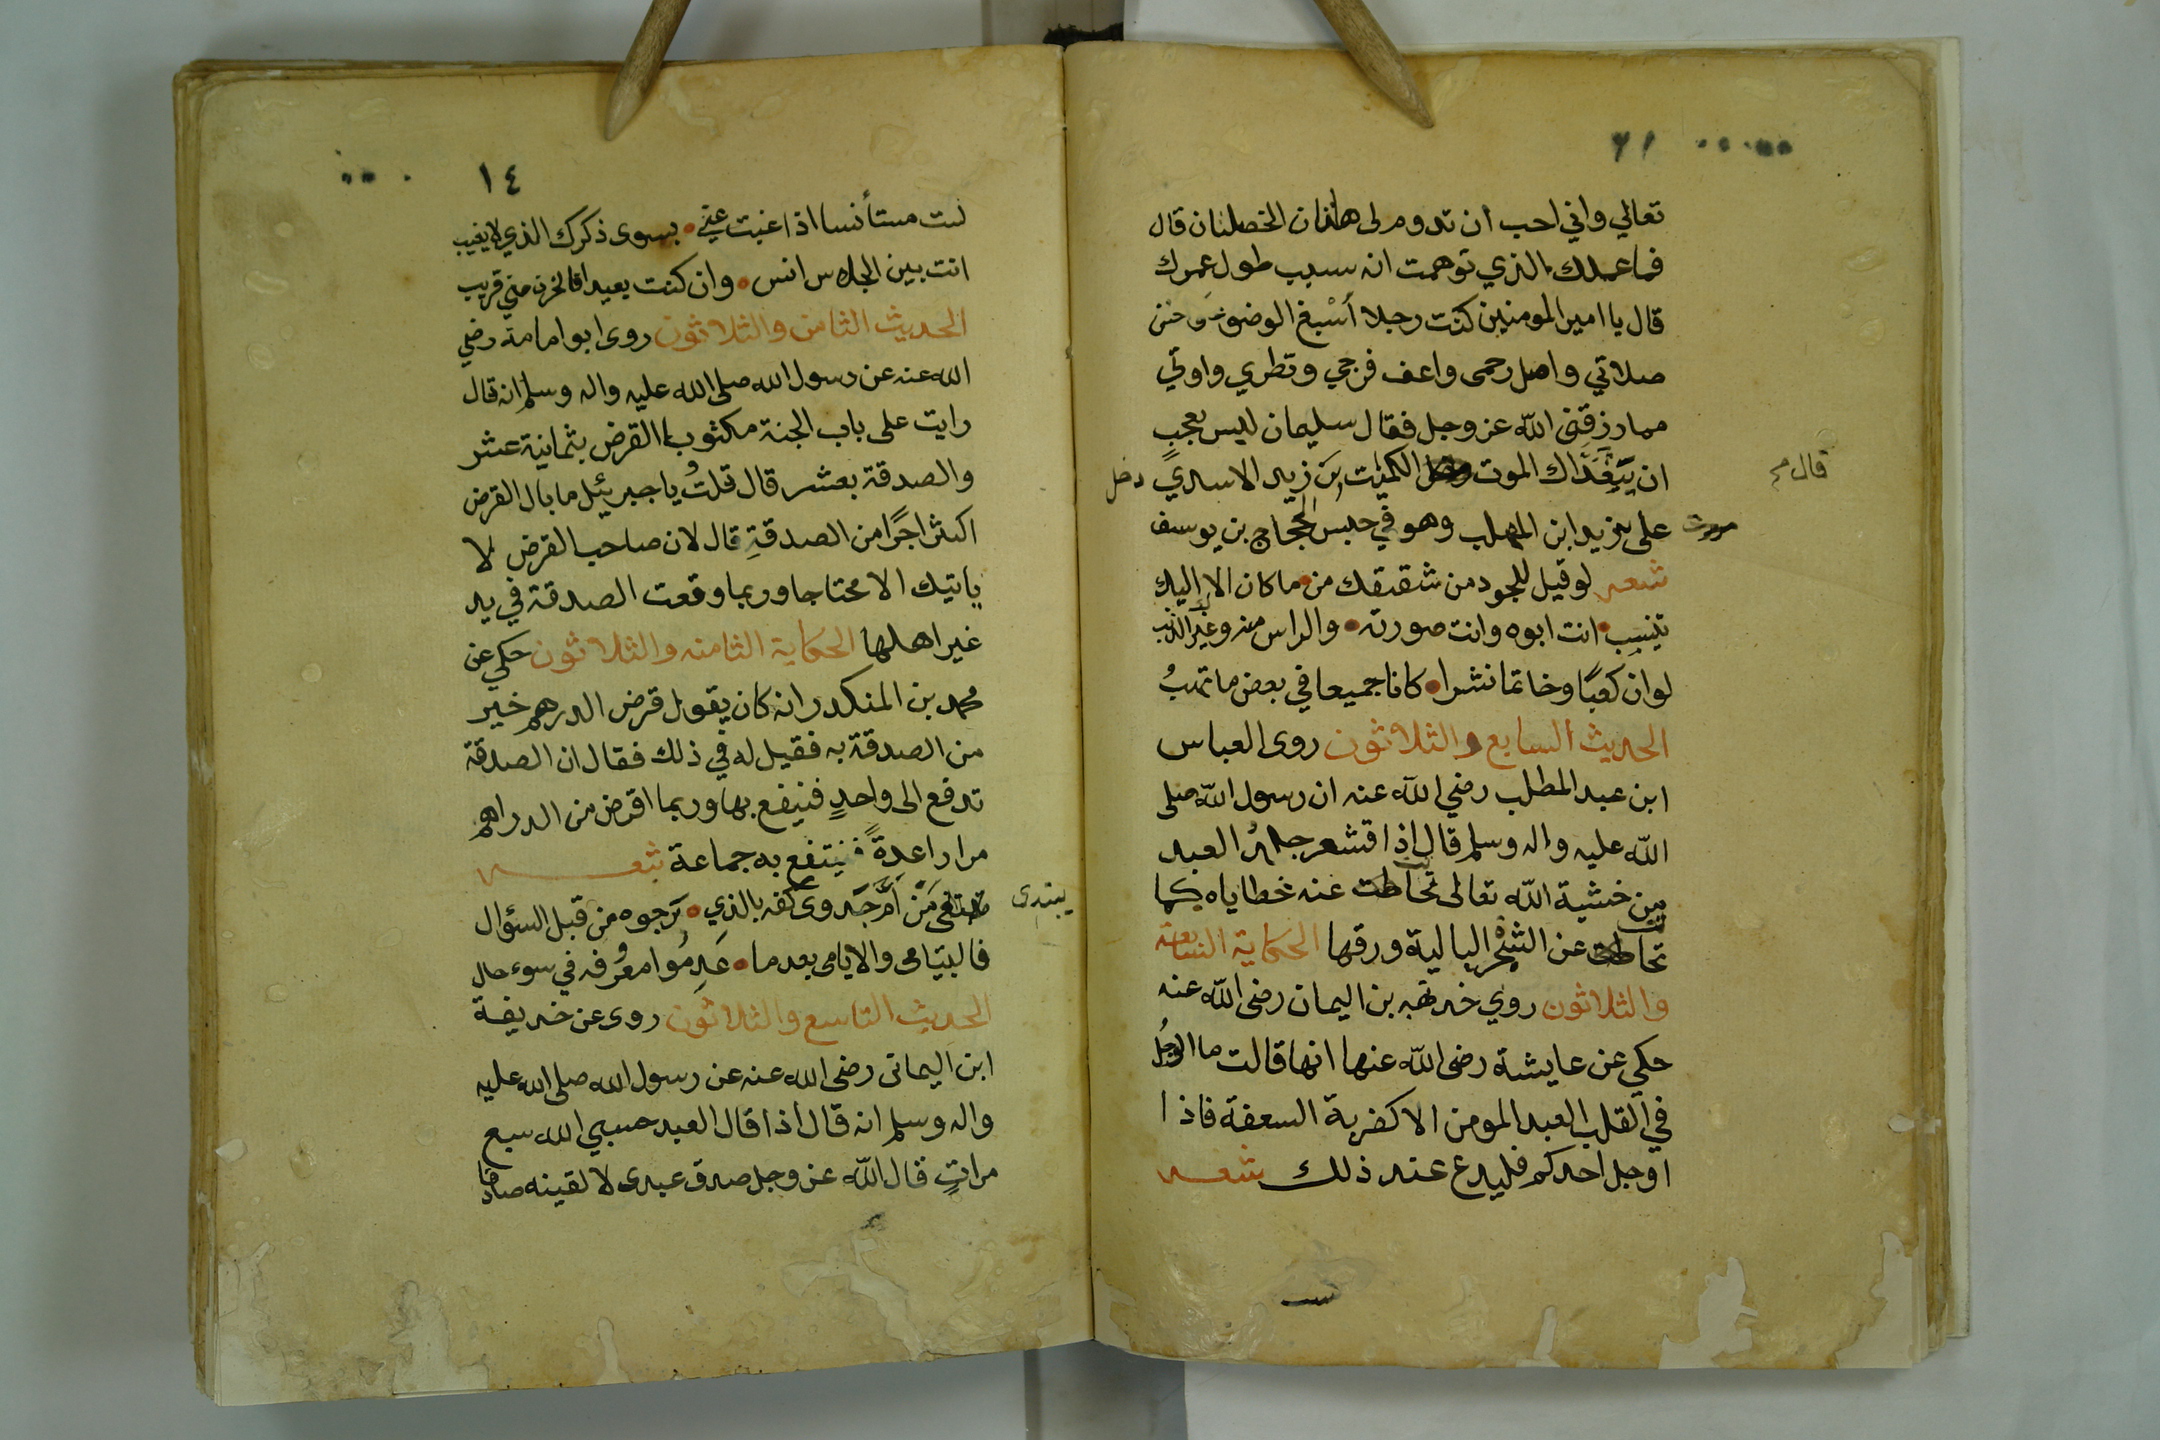 ٢١
تعالي واني احب ان تدوم لي هاذان الخصلتان قال
فما عملك الذي توهمت انه سبب طول عمرك
قال يا امير المومنين كنت رجلا أسبغ الوضوء و
صلاتي واصل رحمي واعف فرجي ونظري واوتي
مما رزقني الله عز وجل فقال سليمان ليس بعجبٍ
ان يتعداك الموت الكميت بن زيد الاسدي دخل
قال مح
على يزيد ابن المهلب وهو في حبس الحجاج بن يوسف
شعر لو قيل للجود من شقيقك من ما كان الا اليك
ينتسب انت ابوه وانت صورته والراس منه وغيرك الذنب
لو ان كعبًا وحاتما نشرا كانا جميعا في بعض ما تهبُ
الحديث السابع والثلاثون روى العباس
ابن عبد المطلب رضي الله عنه ان رسول الله صلى
الله عليه واله وسلم قال اذا اقشعر جلدُ العبد
من خشية الله تعالى تحاطت عنه خطاياه كما
تحاطت عن الشجر البالية ورقها الحكاية السابعة
والثلاثون روي حذيفه بن اليمان رضى الله عنه
حكي عن عايشة رضى الله عنها انها قالت ما الوجلُ
في القلب العبد المومن الا كضربة السعفة فاذا
اوجل احدكم فليدع عند ذلك شعر
١٤
لست مستأنسا اذا غبت عني بسوى ذكرك الذي لا يغيب
انت بين الجلاس انس وان كنت بعيدا فالحزن مني قريب
الحديث الثامن والثلاثون روى ابو امامة رضي
الله عنه عن رسول الله صلى الله عليه واله وسلم انه قال
رايت على باب الجنة مكتوب بالقرض بثمانية عشر
والصدقة بعشر قال قلتُ يا جبريئل ما بال القرض
اكثر اجرًا من الصدقةِ قال لان صاحب القرض لا
ياتيك الا محتاجا وربما وقعت الصدقة في يد
غير اهلها الحكاية الثامنه والثلاثون حكي عن
محمد بن المنكدر انه كان يقول قرض الدرهم خير
من الصدقة به فقيل له في ذلك فقال ان الصدقة
تدفع الى واحدٍ فينفع بها وربما اقرض من الدراهم
مرارا عدةً فينتفع به جماعة شعر
يبتدى مَن أمّ جدوى كفه بالذي يرجوه من قبل السؤال
فاليتامى والايامى بعدما عَدِمُوا معرُفه في سوء حال
الحديث التاسع والثلاثون روى عن حذيفة
ابن اليمانى رضى الله عنه عن رسول الله صلى الله عليه
واله وسلم انه قال اذا قال العبد حسبي الله سبع
مراتٍ قال الله عز وجل صدق عبدى لالقينه صادقا